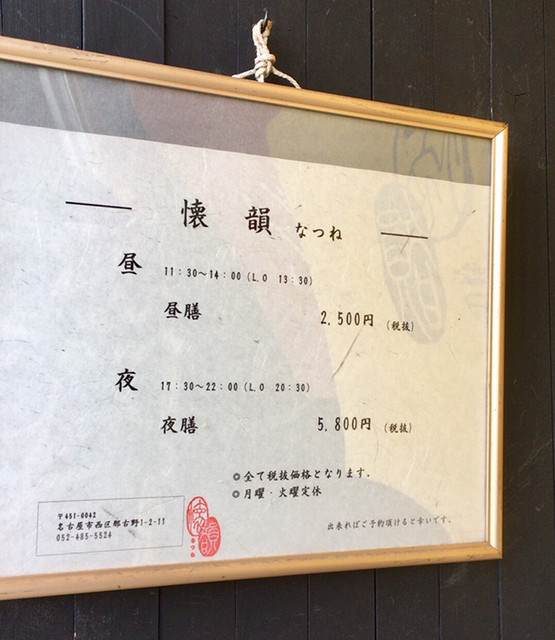 懐韻 なつね
昼 11:30〜14:00(L.O 13:30)
昼膳 2,500円 (税抜)
夜 17:30〜22:00(L.O 20:30)
夜膳 5,800円 (税抜)
◎全て税抜価格となります.
◎月曜・火曜定休
〒451-0042
名古屋市西区那古野1-2-11
052-485-5524
出来ればご予約頂けると幸いです。